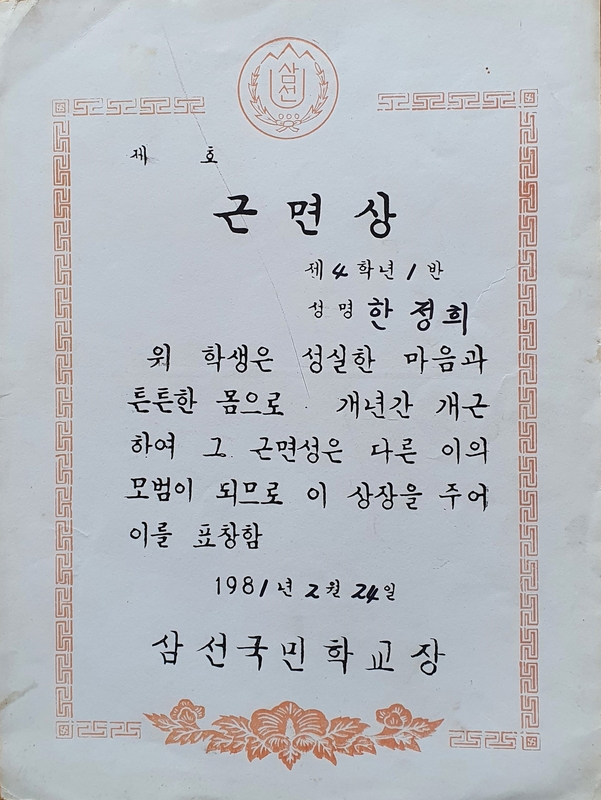 삼선
제 호
근면상
제4학년1반
성명 한정희
위 학생은 성실한 마음과
튼튼한 몸으로 개년간 개근
하여 그 근면성은 다른 이의
모범이 되므로 이 상장을 주어
이를 표창함
1981년 2월 24일
삼선국민학교장